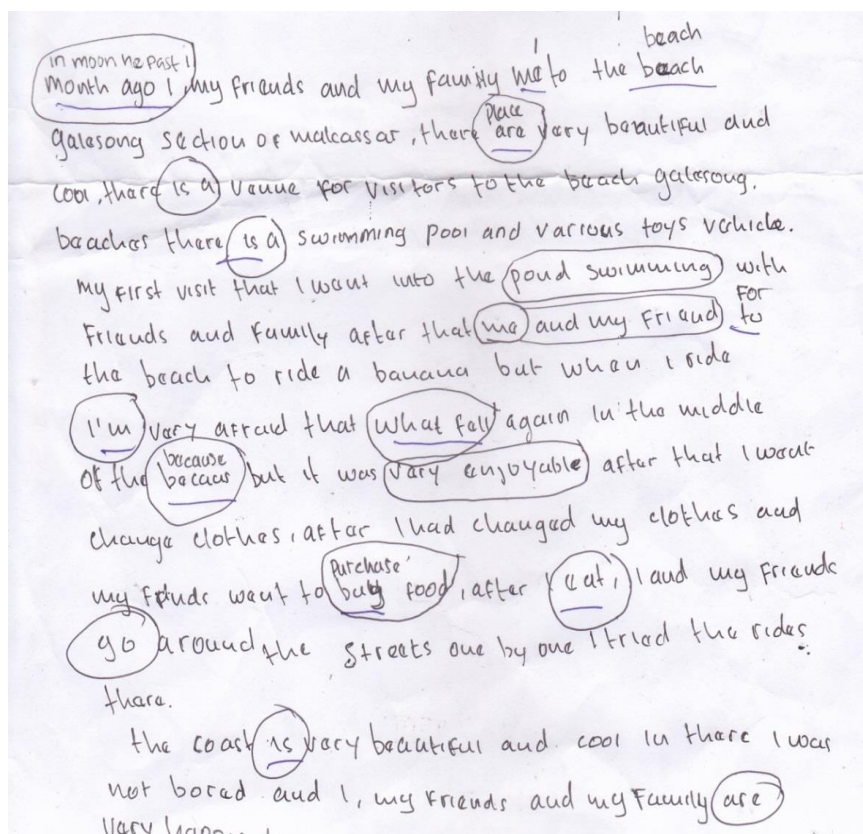 beach
in moon he past 1
month ago I, my friends and my family me to the beach
place
galesong section of makassar, there are very beautiful and
cool, there is a venue for visitors to the beach galesong.
beaches there is a swimming pool and various toys vehicle.
my first visit that I went into the pond swimming with
for
friends and family after that me and my friend to
the beach to ride a banana but when I ride
I'm very afraid that what fell again in the middle
because
of the becaus but it was very enjoyable after that I went
change clothes, after I had changed my clothes and
purchase
my friends went to buy food, after I eat, I and my friends
go around the streets one by one I tried the rides
there.
the coast is very beautiful and cool in there I was
not bored and I, my friends and my family are
very